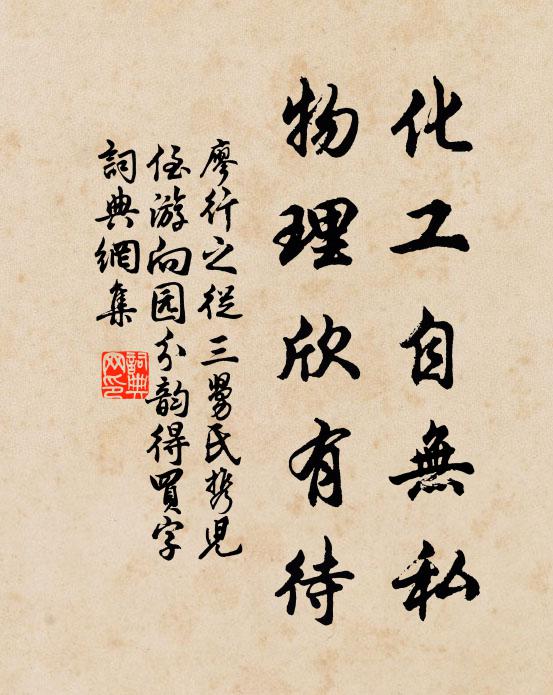 化工自無私
物理欣有待
廖行之從三舅氏攜兒
侄游向园分韵得買字
詞典網集
詞典網印